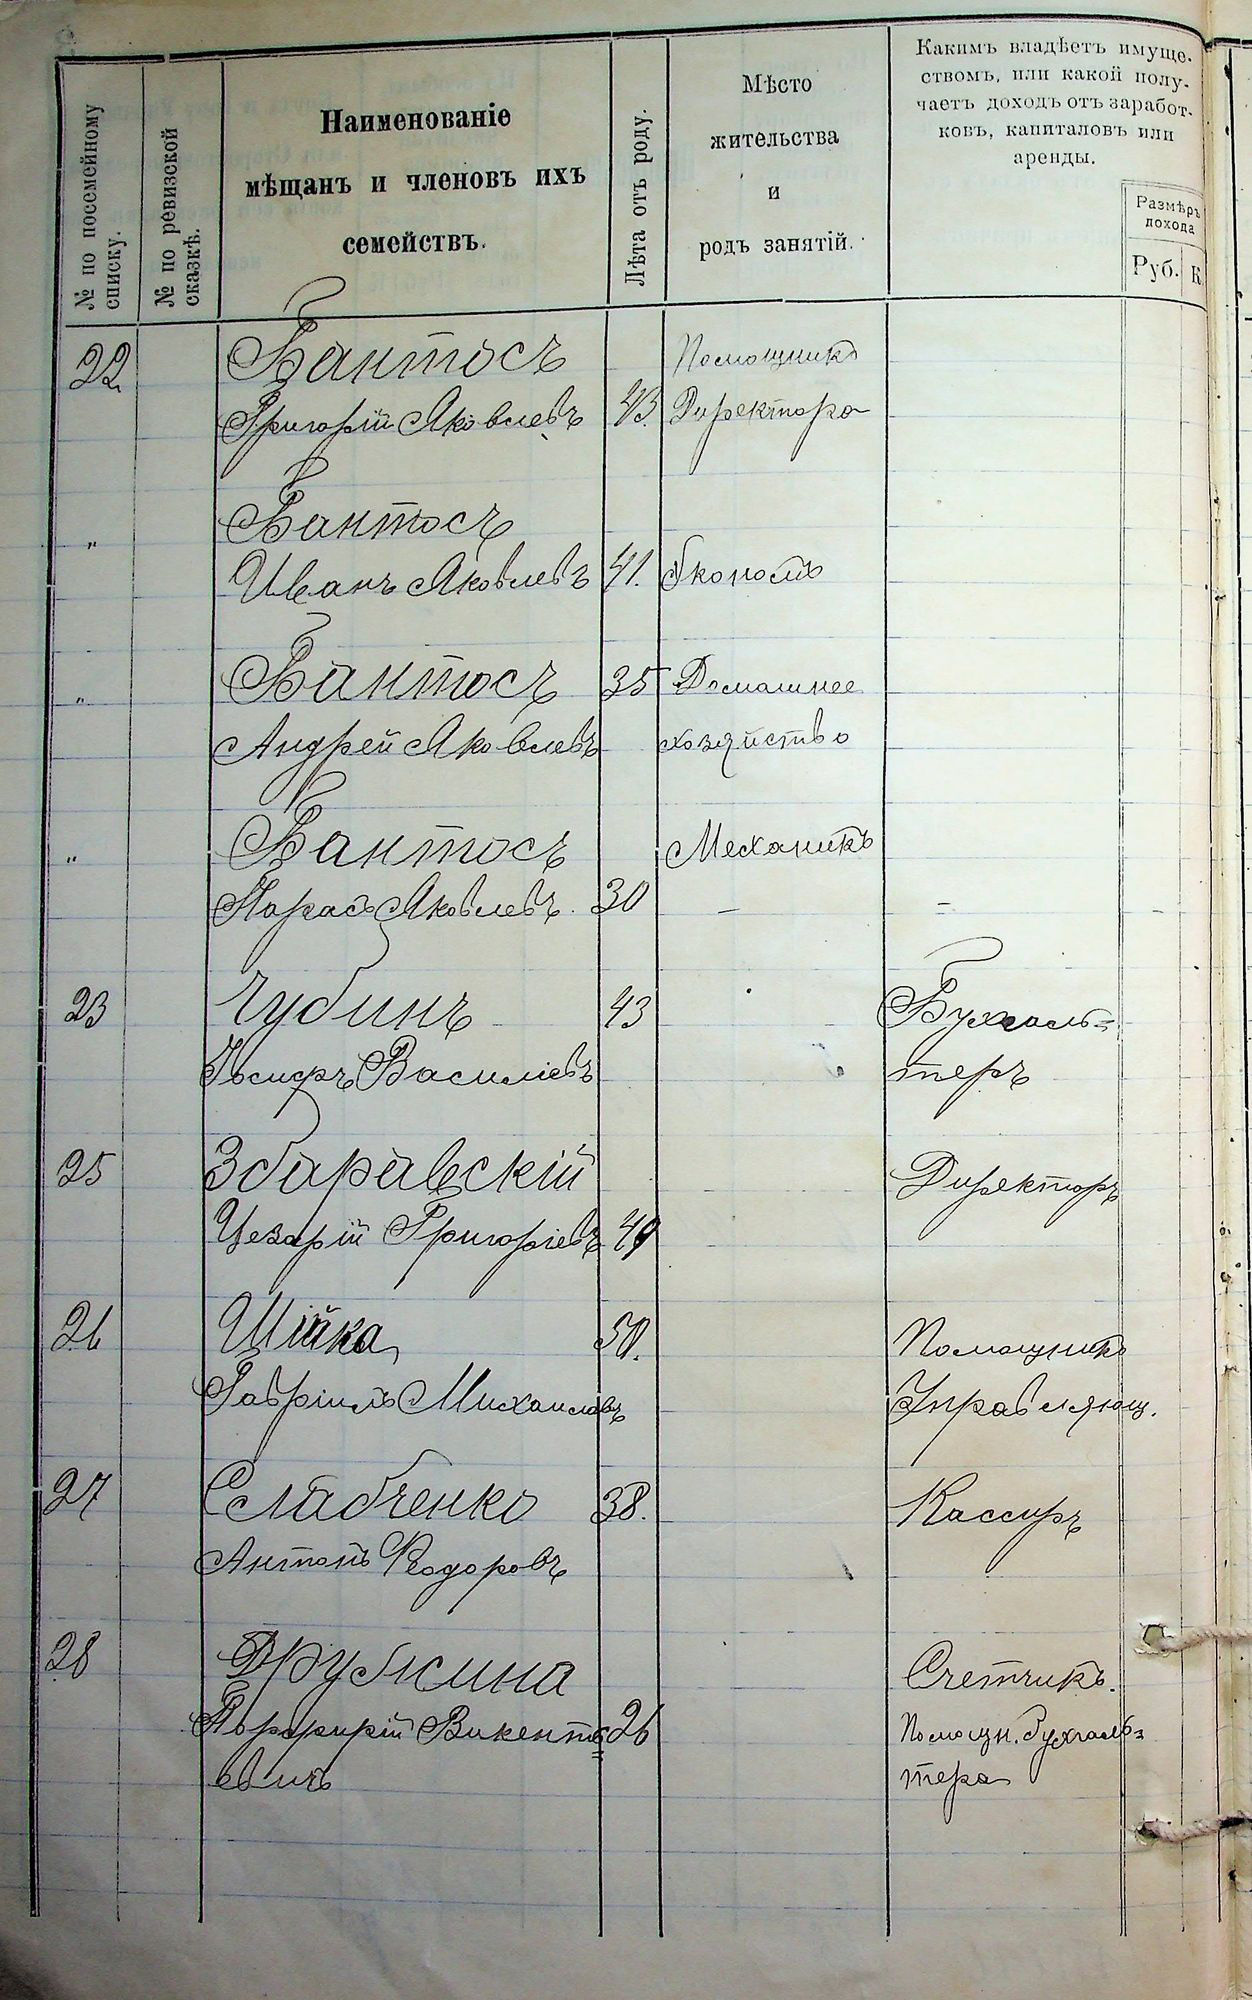 № по посемейному
списку.
№ по ревизской
сказкѣ.
Наименованіе
мѣщанъ и членовъ ихъ
семействъ.
Лѣта отъ роду.
Мѣсто
жительства
и
родъ занятій.
Какимъ владѣетъ имуще-
ствомъ, или какой полу-
чаетъ доходъ отъ заработ-
ковъ, капиталовъ или
аренды.
Размѣръ
дохода
Руб. К.
22 Бантосъ Помощникъ
Григорій Яковлевъ 43. Директора
" Бантосъ
Иванъ Яковлевъ 41. Экономъ
" Бантосъ 35 Домашнее
Андрей Яковлевъ хозяйство
" Бантосъ Механикъ
Тарасъ Яковлевъ. 30 – – –
23 Чубинъ 43 Бухгаль=
Іосифъ Василіевъ теръ
25 Збаравскій Директоръ
Цезарій Григоріевъ
26 Шійка 50. Помощникъ
Гавріилъ Михаиловъ Управляющ.
27 Слабченко 38. Кассиръ
Антонъ Ѳеодоровъ
28 Счетчикъ.
Порфирій Викентіе= 26 Помощн. Бухгаль=
вичъ тера